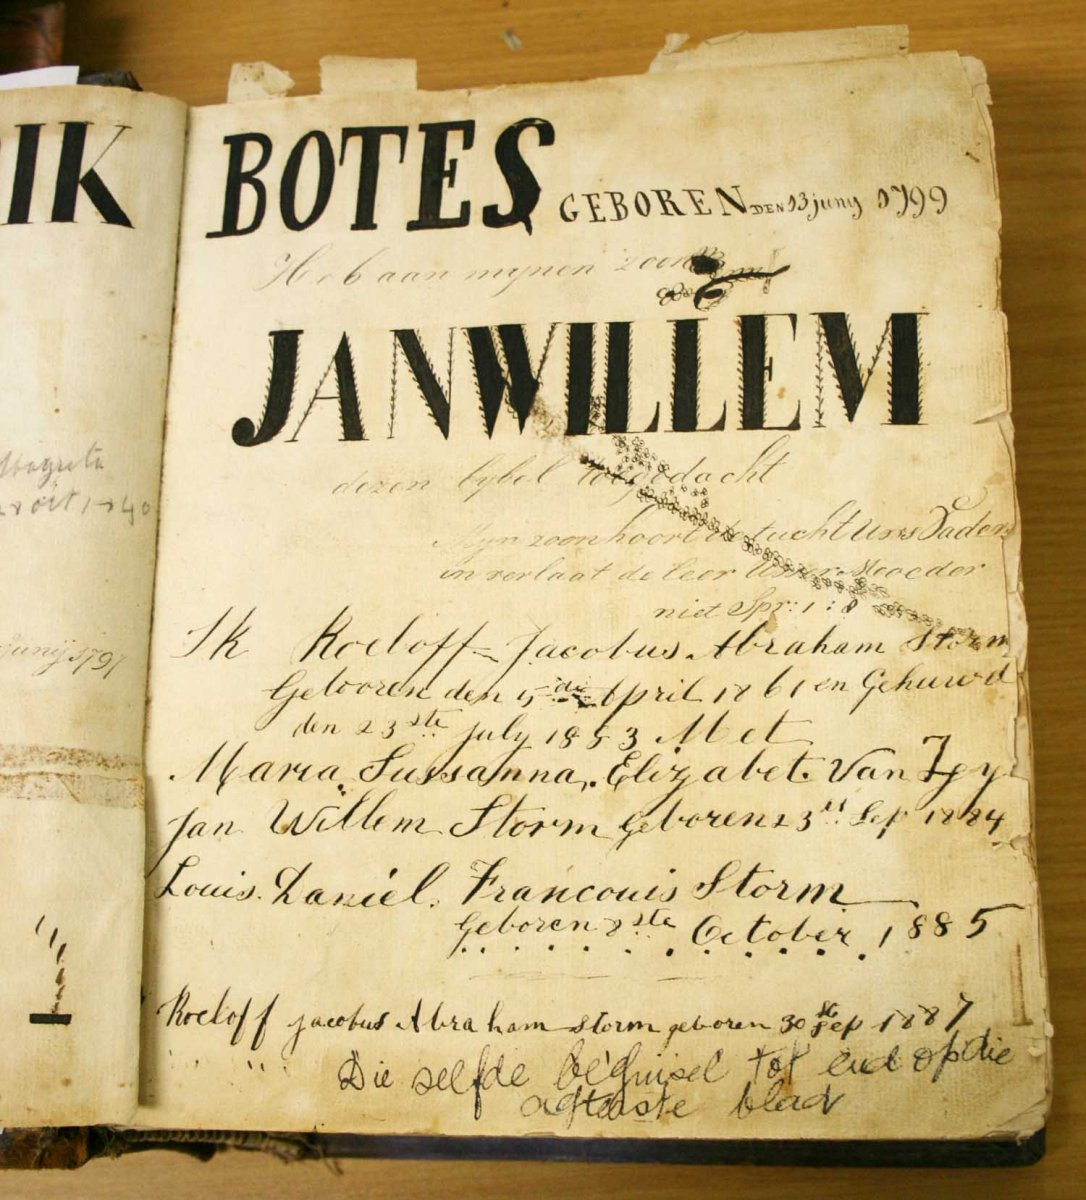 RIK
BOTES GEBOREN DEN 13 juny 1799
Heb aan mynen zoon
JANWILLEM
dezen bybel toegedacht
Myn zoon hoort de tucht Uws Vaders
en verlaat de leer Uwer Moeder
niet Spr: 1: 8
Ik Roeloff Jacobus Abraham Storm
Gebooren den 5de April 1861 en Gehuwd
den 23ste July 1883 Met
Maria Sussanna Elizabet Van Zyl
Jan Willem Storm geboren 23 Sep 1884
Louis Daniel Francouis Storm
Geboren 8ste October 1885
Roeloff jacobus Abraham Storm geboren 30 Sep 1887
Die selfde beginsel tot end op die
agterste blad
Magreta
oct 1740
Junij 1797